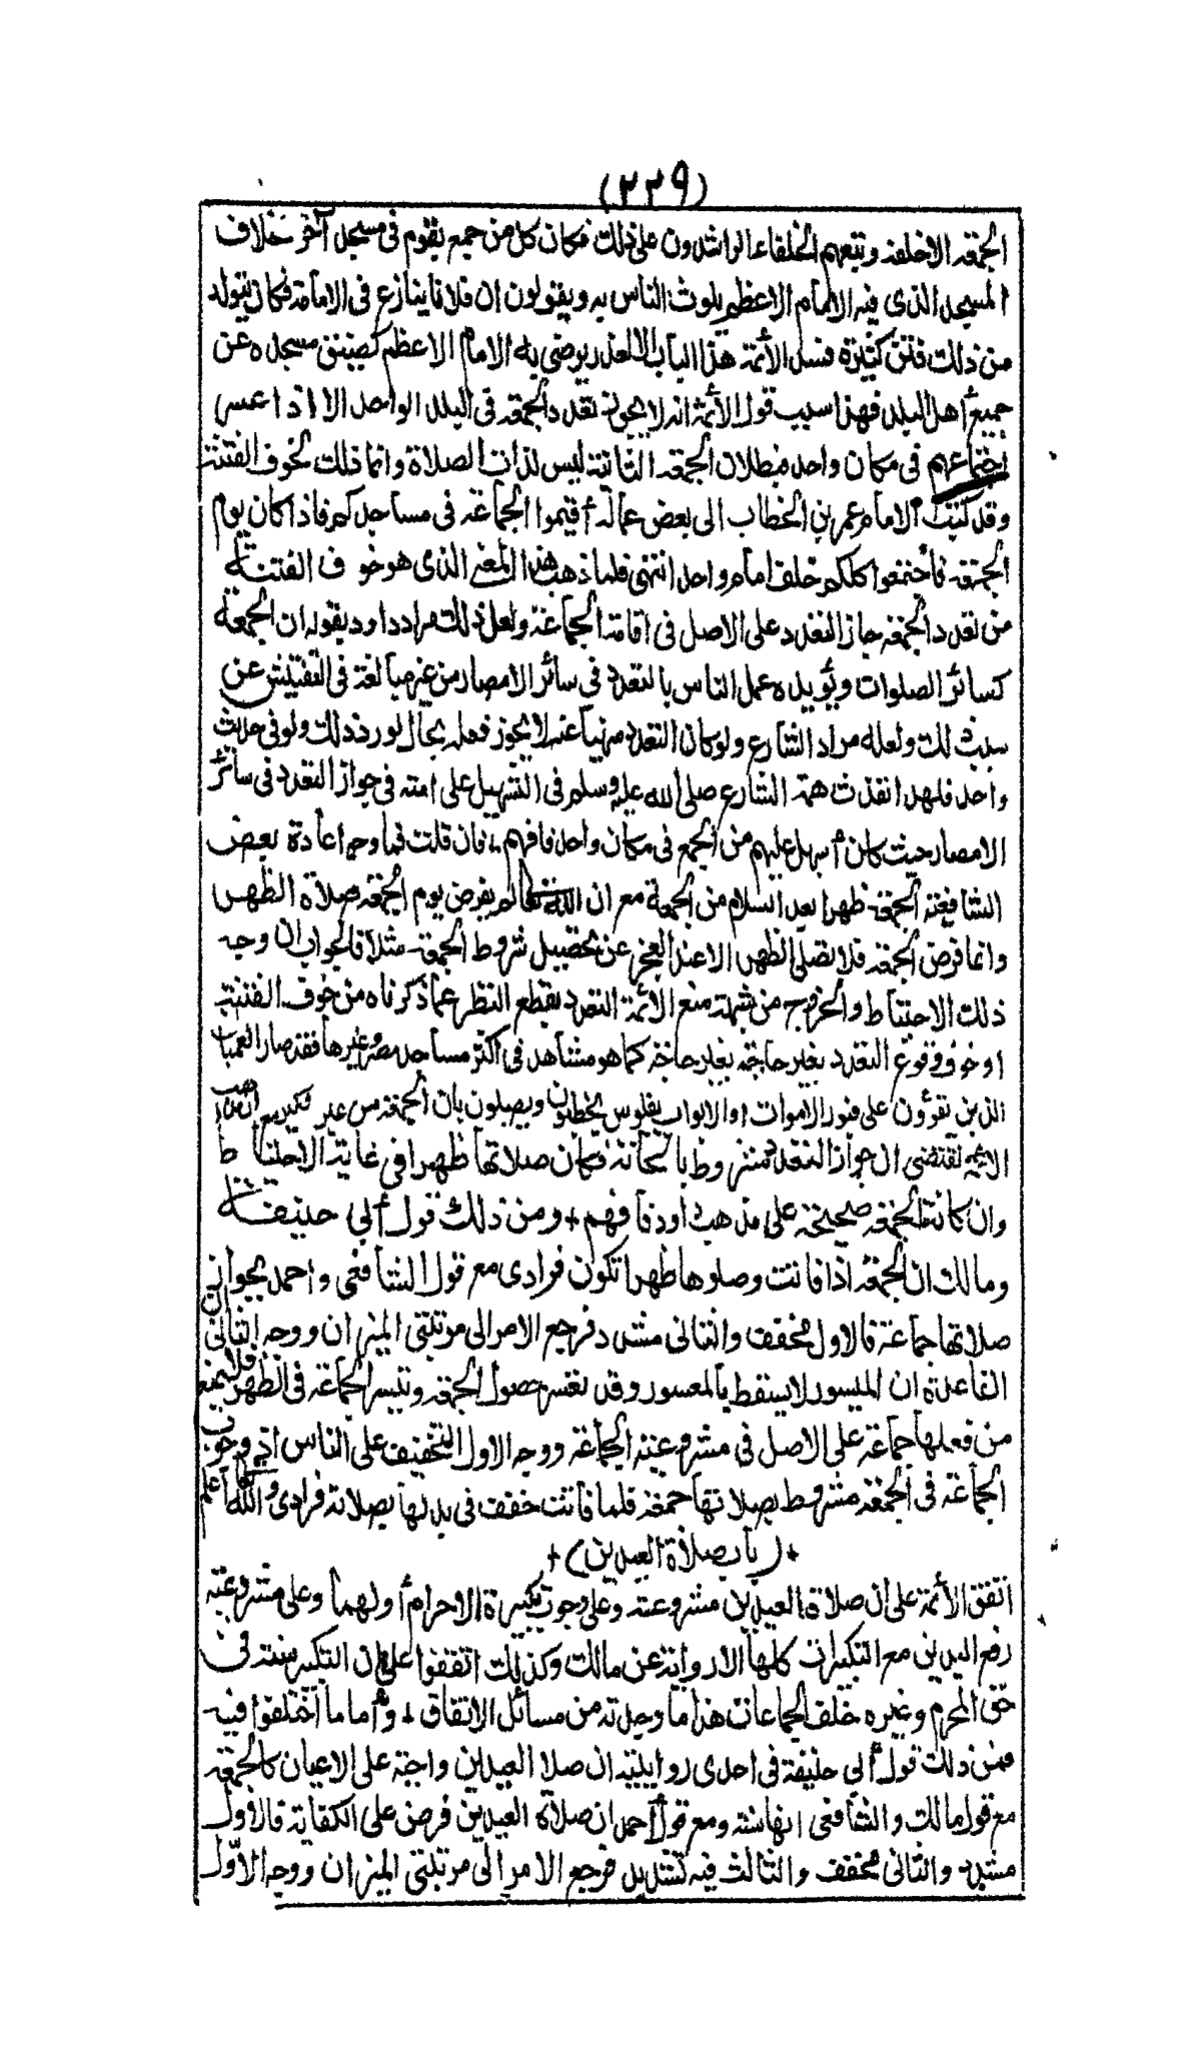 (٢٢٩)
الجمعة الا خلفه وتبعهم الخلفاء الراشدون على ذلك فكان كل من جمع بقوم فى مسجد آخر خلاف
المسجد الذى فيه الامام الاعظم يلوث الناس به ويقولون ان فلانا ينازع فى الامامة فكان يتولد
من ذلك فتن كثيرة فسد الأئمة هذا الباب الا لعذر يرضى به الامام الاعظم كضيق مسجده عن
جميع أهل البلد فهذا سبب قول الأئمة انه لا يجوز تعدد الجمعة فى البلد الواحد الا اذا عسر
اجتماعهم فى مكان واحد فبطلان الجمعة الثانية ليس لذات الصلاة وانما ذلك لخوف الفتنة
وقد كتب الامام عمر بن الخطاب الى بعض عماله أقيموا الجماعة فى مساجدكم فاذا كان يوم
الجمعة فأجتمعوا كلكم خلف امام واحد انتهى فلما ذهب هذا المعنى الذى هو خوف الفتنة
من تعدد الجمعة جاز التعدد على الاصل فى اقامة الجماعة ولعل ذلك مراد داود بقوله ان الجمعة
كسائر الصلوات ويؤيده عمل الناس بالتعدد فى سائر الامصار من غير مبالغة فى التفتيش عن
سبب ذلك ولعله مراد الشارع ولو كان التعدد منهيا عنه لا يجوز فعله بحال لورد ذلك ولو فى حديث
واحد فلهذا نفذت همة الشارع صلى الله عليه وسلم فى التسهيل على امته فى جواز التعدد فى سائر
الامصار حيث كان أسهل عليهم من الجمع فى مكان واحد فافهم ، فان قلت فما وجه اعادة بعض
الشافعية الجمعة ظهرا بعد السلام من الجمعة مع ان الله تعالى لم يفرض يوم الجمعة صلاة الظهر
وانما فرض الجمعة فلا يصلى الظهر الا عند العجز عن تحصيل شروط الجمعة مثلا فالجواب ان وجه
ذلك الاحتياط والخروج من شبهة منع الأئمة التعدد بقطع النظر عما ذكرناه من خوف الفتنة
اوخوف وقوع التعدد بغير حاجة بغير حاجة كما هو مشاهد فى اكثر مساجد مصر وغيرها فقد صار العميان
الذين يقرؤون على قبور الاموات او الابواب بفلوس يخطبون ويصلون بالناس الجمعة من غير نكير مع ان مذاهب
الائمة تقتضى ان جواز التعدد مشروط بالحاجة فكان صلاتها ظهرا فى غاية الاحتياط
وان كانت الجمعة صحيحة على مذهب داود فافهم + ومن ذلك قول أبي حنيفة
ومالك ان الجمعة اذا فاتت وصلوها ظهرا تكون فرادى مع قول الشافعى واحمد بجواز
صلاتها جماعة فالاول مخفف والثانى مشدد فرجع الامر الى مرتبتى الميزان ووجه الثانى ان
القاعدة ان الميسور لا يسقط بالمعسور وقد تعسر حصول الجمعة وتيسر الجماعة فى الظهر فلا يمنع
من فعلها جماعة على الاصل فى مشروعية الجماعة ووجه الاول التخفيف على الناس اذ وجوب
الجماعة فى الجمعة مشروط بصلاتها جمعة فلما فاتت خفف فى بدلها بصلاته فرادى والله تعالى اعلم
+ (باب صلاة العيدين) +
اتفق الأئمة على ان صلاة العيدين مشروعة وعلى وجوب تكبيرة الاحرام أولهما وعلى مشروعية
رفع اليدين مع التكبيرات كلها الا رواية عن مالك وكذلك اتفقوا على ان التكبير سنة فى
حق المحرم وغيره خلف الجماعات هذا ما وجدته من مسائل الاتفاق + وأما ما اختلفوا فيه
فمن ذلك قول أبي حنيفة فى احدى روايتيه ان صلاة العيدين واجبة على الاعيان كالجمعة
مع قول مالك والشافعى انها سنة ومع قول أحمد ان صلاة العيدين فرض على الكفاية فالاول
مشدد والثانى مخفف والثالث فيه تشديد فرجع الامر الى مرتبتى الميزان ووجه الأول